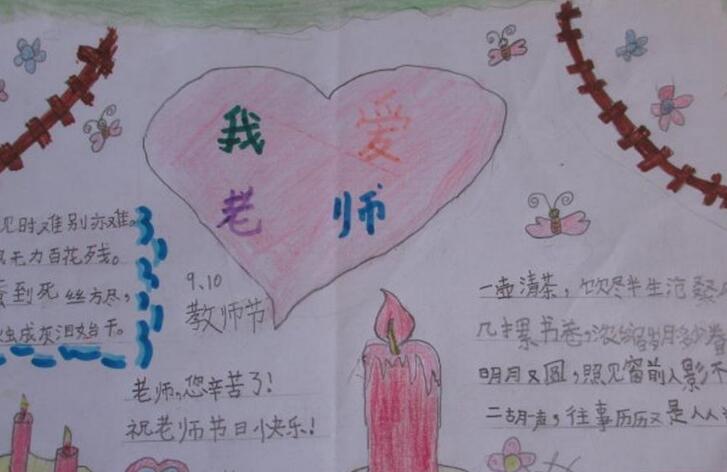 我 爱
老 师
见时难别亦难。
无力百花残。
蚕到死丝方尽,
成灰泪始干。
9.10
教师节
老师,您辛苦了!
祝老师节日快乐!
一壶清茶,饮尽半生沧桑
几摞书卷,浓缩岁月多少
明月又圆,照见窗前人影不
二胡一声,往事历历又是人人